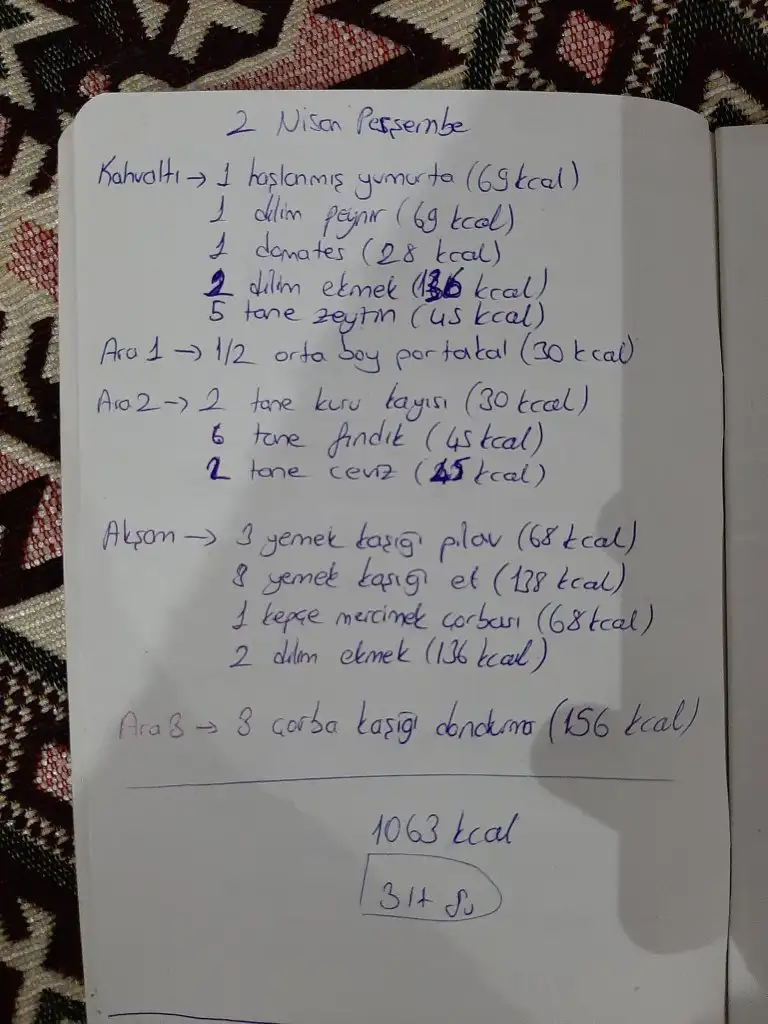 2 Nisan Perşembe
Kahvaltı → 1 haşlanmış yumurta (69 kcal)
1 dilim peynir (69 kcal)
1 domates (28 kcal)
2 dilim ekmek (136 kcal)
5 tane zeytin (45 kcal)
Ara 1 → 1/2 orta boy portakal (30 kcal)
Ara 2 → 2 tane kuru kayısı (30 kcal)
6 tane fındık (45 kcal)
2 tane ceviz (45 kcal)
Akşam → 3 yemek kaşığı pilav (68 kcal)
3 yemek kaşığı et (138 kcal)
1 kepçe mercimek çorbası (68 kcal)
2 dilim ekmek (136 kcal)
Ara 3 → 3 çorba kaşığı dondurma (156 kcal)
1063 kcal
3 lt su